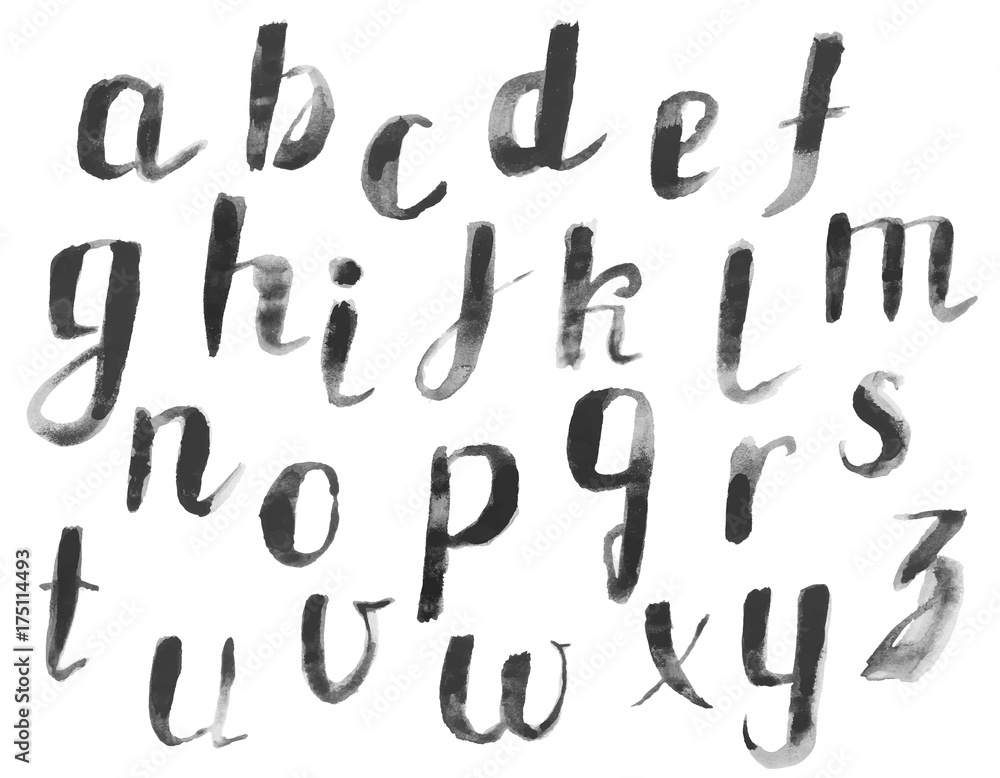 a b c d e f
g h i j k l m
n o p q r s
t u v w x y z
Adobe Stock | #175114493